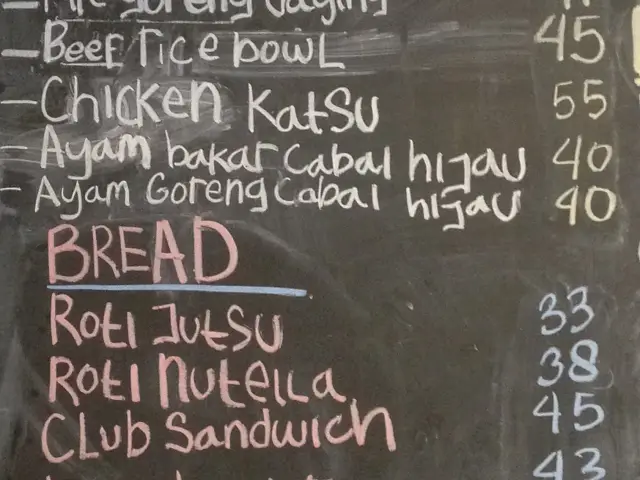 goreng daging
- Beef rice bowl 45
- Chicken Katsu 55
- Ayam bakar cabai hijau 40
- Ayam Goreng cabai hijau 40
BREAD
Roti Jutsu 33
Roti Nutella 38
Club Sandwich 45
43